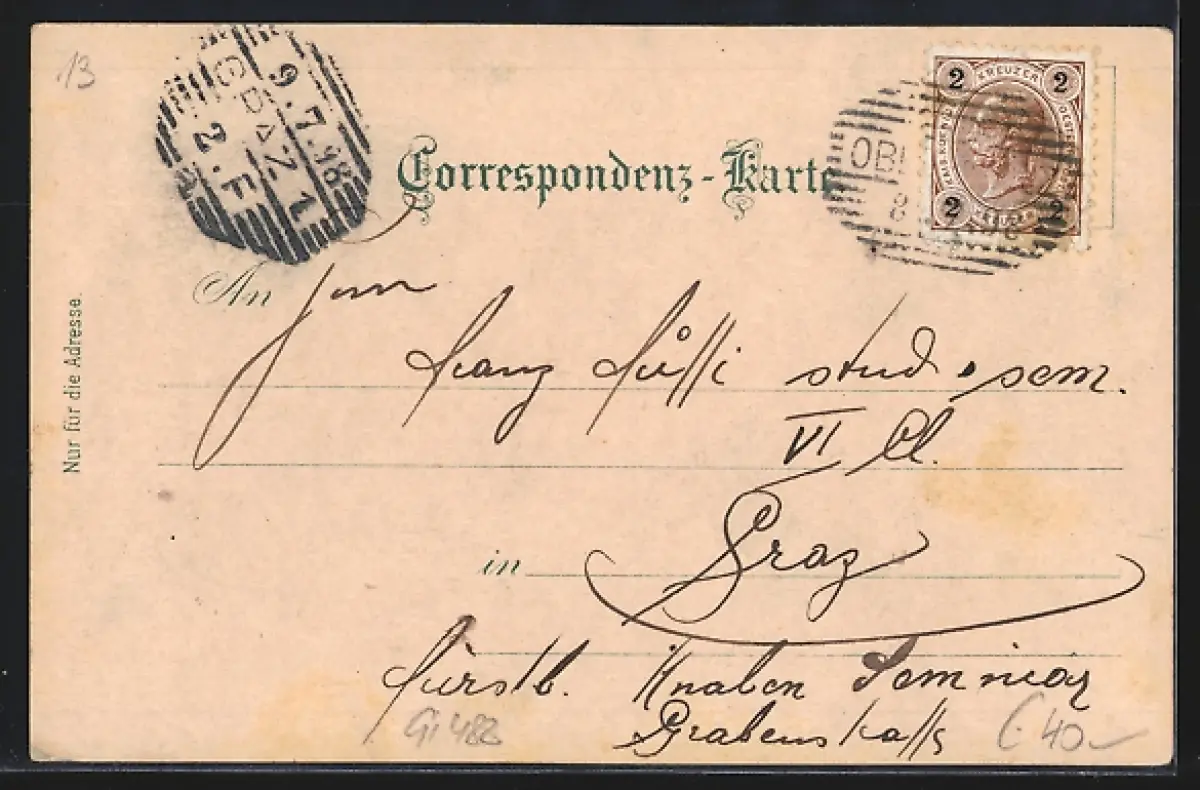 13
9.7.98
GRAZ 1
2.F
Correspondenz-Karte
2 KREUZER 2
2 KREUZER 2
OB
8
98
Nur für die Adresse.
An Herrn
Franz
stud. sem.
VI Cl.
in Graz
fürstb. Knaben Seminar
Gi 488
Grabenstraße
€ 40–